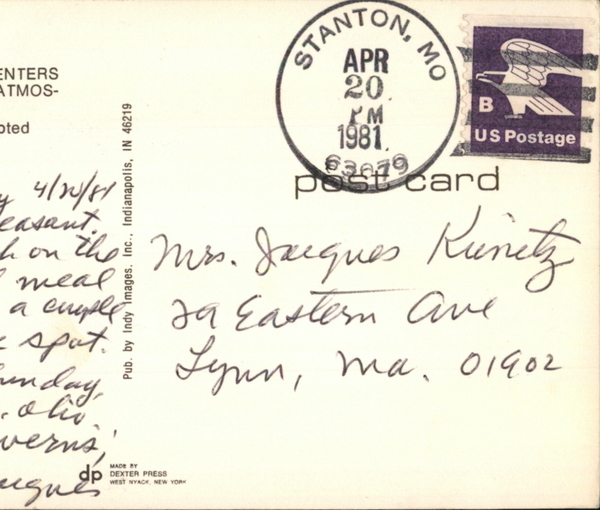 ENTERS
ATMOS-
pted
4/20/81
easant.
h on the
meal
a couple
spot.
unday,
Ohio
verns,
Pub. by Indy Images, Inc., Indianapolis, IN 46219
dp
MADE BY
DEXTER PRESS
WEST NYACK, NEW YORK
STANTON, MO
APR
20
PM
1981
63079
B
US Postage
post card
Mrs. Jacques Kunetz
2a Eastern Ave
Lynn, Ma. 01902